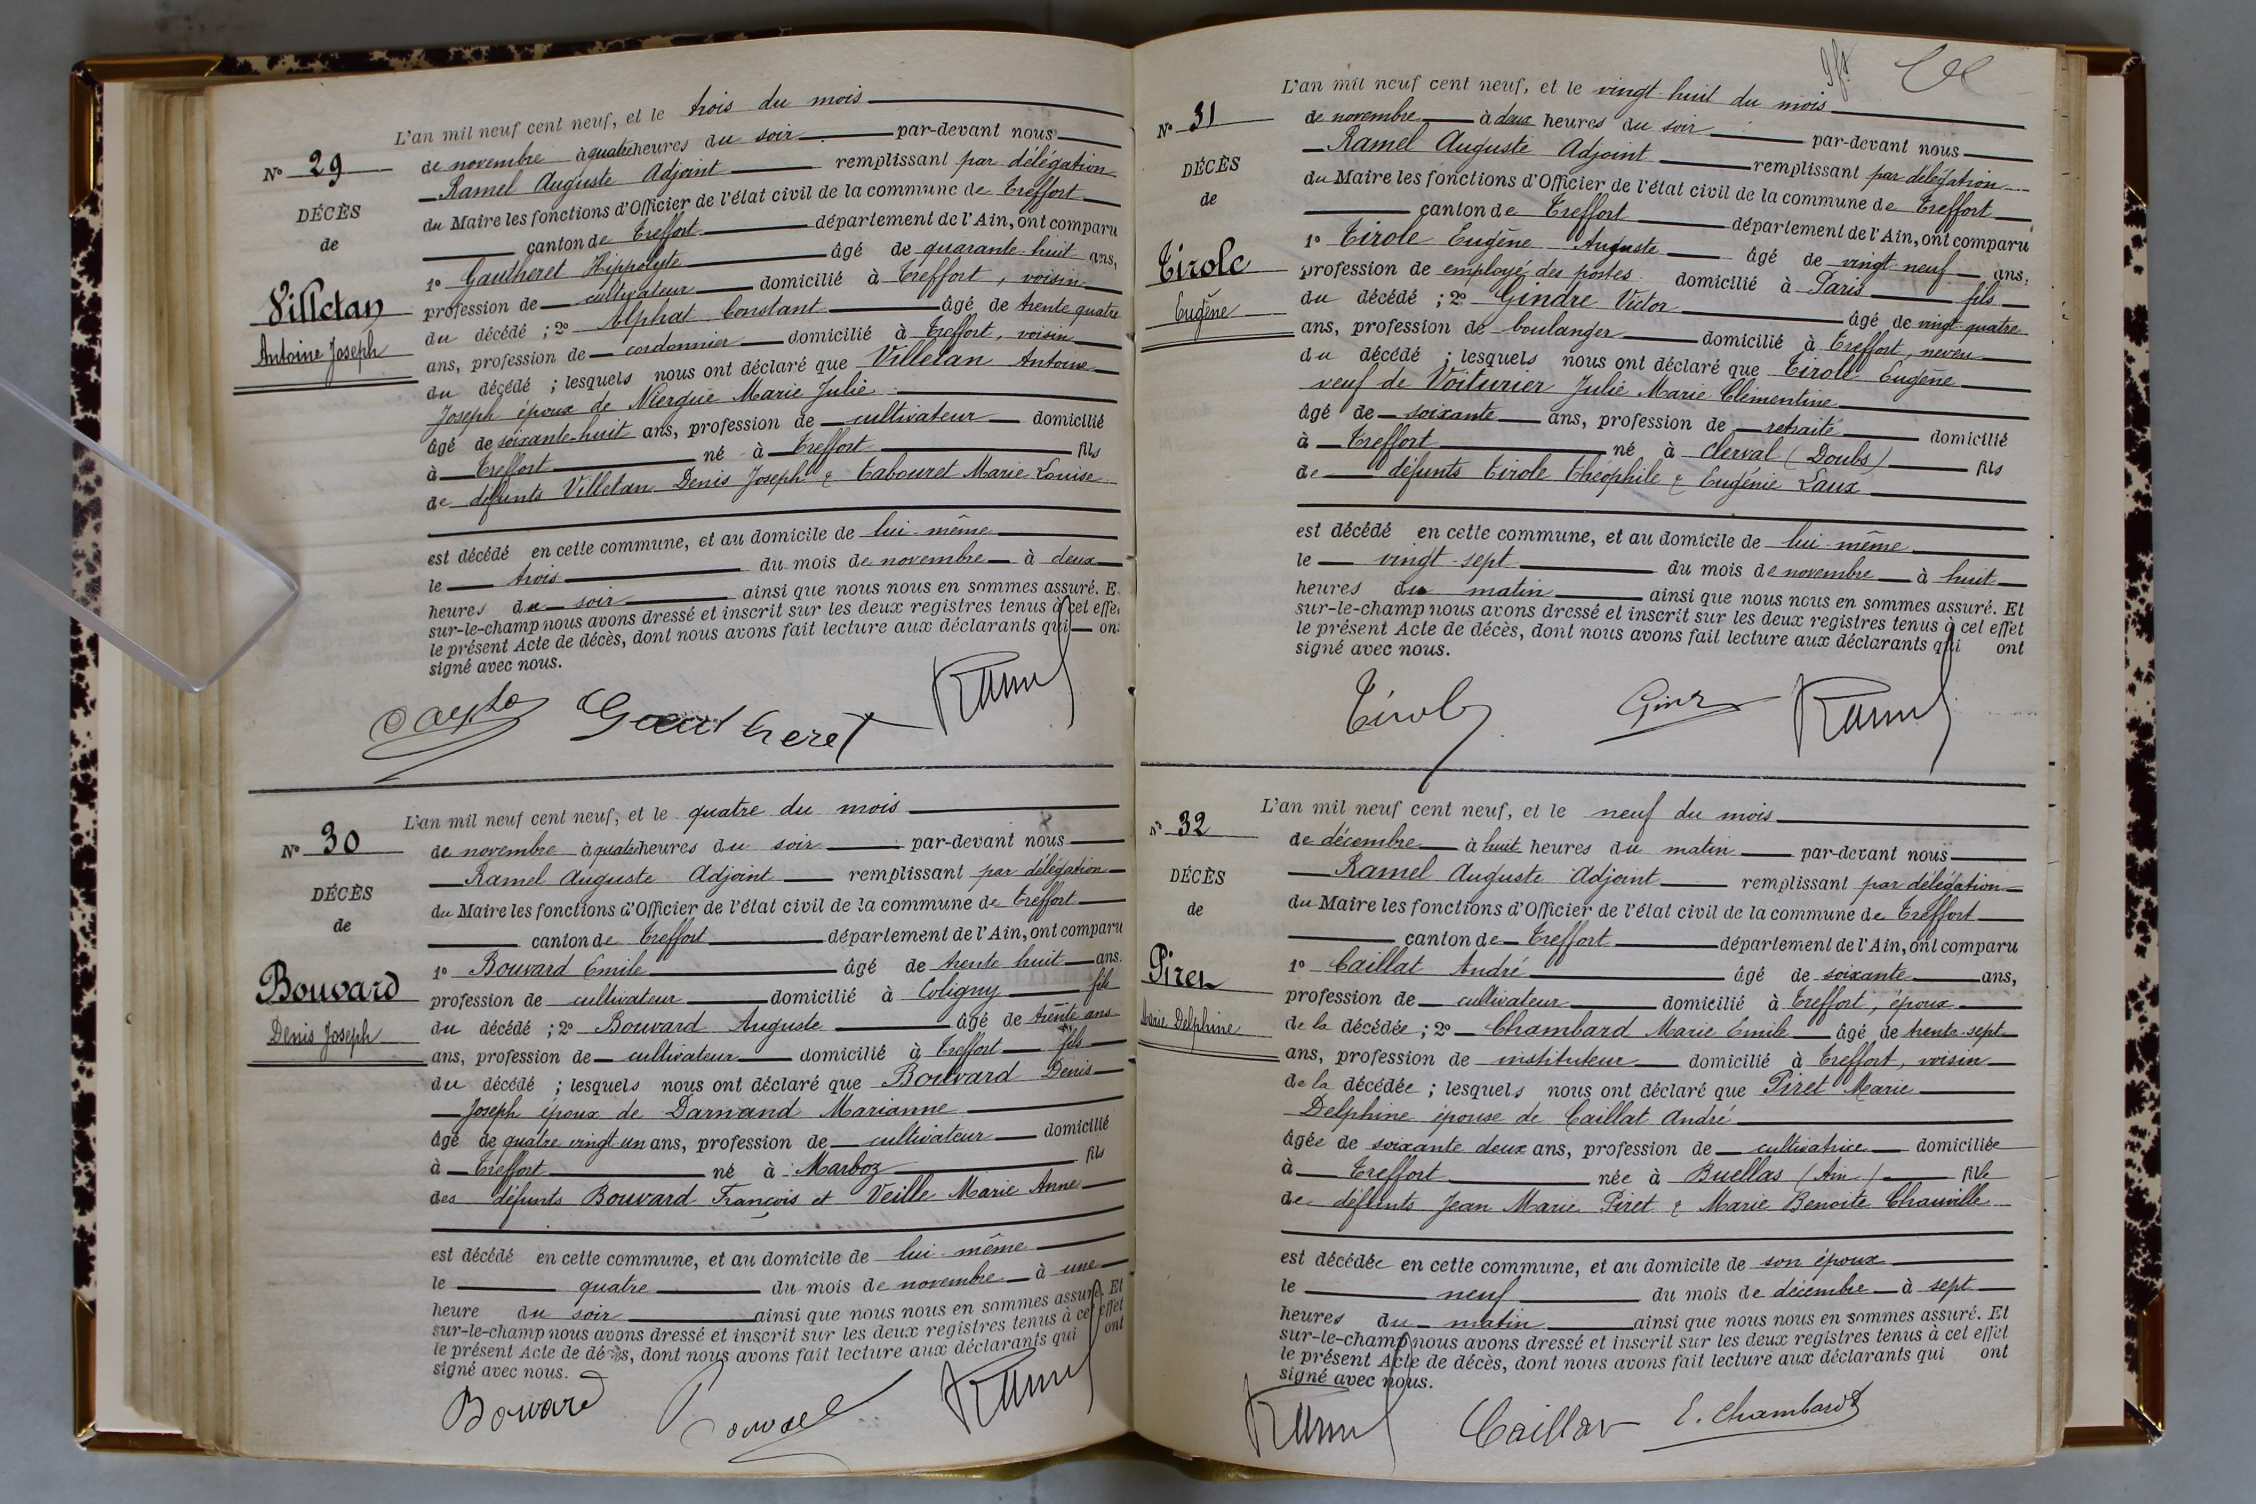 L'an mil neuf cent neuf, et le trois du mois
N° 29 de novembre à quatre heures du soir par-devant nous
DÉCÈS
de
Villetan
Antoine Joseph
Ramel Auguste Adjoint remplissant par délégation
du Maire les fonctions d'Officier de l'état civil de la commune de Treffort
canton de Treffort département de l'Ain, ont comparu
1° Gautheret Hippolyte âgé de quarante-huit ans,
profession de cultivateur domicilié à Treffort, voisin
du décédé ; 2° Alphat Constant âgé de trente quatre
ans, profession de cordonnier domicilié à Treffort, voisin
du décédé ; lesquels nous ont déclaré que Villetan Antoine
Joseph époux de Niergue Marie Julie
âgé de soixante-huit ans, profession de cultivateur domicilié
à Treffort né à Treffort fils
de défunts Villetan Denis Joseph & Tabouret Marie Louise
est décédé en cette commune, et au domicile de lui-même
le trois du mois de novembre à deux
heures du soir ainsi que nous nous en sommes assuré. E
sur-le-champ nous avons dressé et inscrit sur les deux registres tenus à cet effe
le présent Acte de décès, dont nous avons fait lecture aux déclarants qui on
signé avec nous.
Gautheret Ramel
L'an mil neuf cent neuf, et le quatre du mois
N° 30 de novembre à quatre heures du soir par-devant nous
DÉCÈS
de
Bouvard
Denis Joseph
Ramel Auguste Adjoint remplissant par délégation
du Maire les fonctions d'Officier de l'état civil de la commune de Treffort
canton de Treffort département de l'Ain, ont comparu
1° Bouvard Emile âgé de trente huit ans.
profession de cultivateur domicilié à Coligny fils
du décédé ; 2° Bouvard Auguste âgé de trente ans
ans, profession de cultivateur domicilié à Treffort fils
du décédé ; lesquels nous ont déclaré que Bouvard Denis
Joseph époux de Darnand Marianne
âgé de quatre vingt-un ans, profession de cultivateur domicilié
à Treffort né à Marboz fils
des défunts Bouvard François et Veille Marie Anne
est décédé en cette commune, et au domicile de lui-même
le quatre du mois de novembre à une
heure du soir ainsi que nous nous en sommes assuré. Et
sur-le-champ nous avons dressé et inscrit sur les deux registres tenus à cet effet
le présent Acte de décès, dont nous avons fait lecture aux déclarants qui ont
signé avec nous.
Bouvard Ramel
L'an mil neuf cent neuf, et le vingt-huit du mois
N° 31 de novembre à deux heures du soir par-devant nous
DÉCÈS
de
Tirole
Eugène
Ramel Auguste Adjoint remplissant par délégation
du Maire les fonctions d'Officier de l'état civil de la commune de Treffort
canton de Treffort département de l'Ain, ont comparu
1° Tirole Eugène Auguste âgé de vingt-neuf ans,
profession de employé des postes domicilié à Paris fils
du décédé ; 2° Gindre Victor âgé de vingt-quatre
ans, profession de boulanger domicilié à Treffort, neveu
du décédé ; lesquels nous ont déclaré que Tirole Eugène
veuf de Voiturier Julie Marie Clémentine
âgé de soixante ans, profession de retraité domicilié
à Treffort né à Clerval (Doubs) fils
de défunts Tirole Théophile & Eugénie Laux
est décédé en cette commune, et au domicile de lui-même
le vingt-sept du mois de novembre à huit
heures du matin ainsi que nous nous en sommes assuré. Et
sur-le-champ nous avons dressé et inscrit sur les deux registres tenus à cet effet
le présent Acte de décès, dont nous avons fait lecture aux déclarants qui ont
signé avec nous.
Tirole Ramel
L'an mil neuf cent neuf, et le neuf du mois
N° 32 de décembre à huit heures du matin par-devant nous
DÉCÈS
de
Piret
Marie Delphine
Ramel Auguste Adjoint remplissant par délégation
du Maire les fonctions d'Officier de l'état civil de la commune de Treffort
canton de Treffort département de l'Ain, ont comparu
1° Caillat André âgé de soixante ans,
profession de cultivateur domicilié à Treffort, époux
de la décédée ; 2° Chambard Marie Emile âgé de trente-sept
ans, profession de instituteur domicilié à Treffort, voisin
de la décédée ; lesquels nous ont déclaré que Piret Marie
Delphine épouse de Caillat André
âgée de soixante deux ans, profession de cultivatrice domiciliée
à Treffort née à Buellas (Ain) fille
de défunts Jean Marie Piret & Marie Benoite Chanville
est décédée en cette commune, et au domicile de son époux
le neuf du mois de décembre à sept
heures du matin ainsi que nous nous en sommes assuré. Et
sur-le-champ nous avons dressé et inscrit sur les deux registres tenus à cet effet
le présent Acte de décès, dont nous avons fait lecture aux déclarants qui ont
signé avec nous.
Ramel Caillat E. Chambard